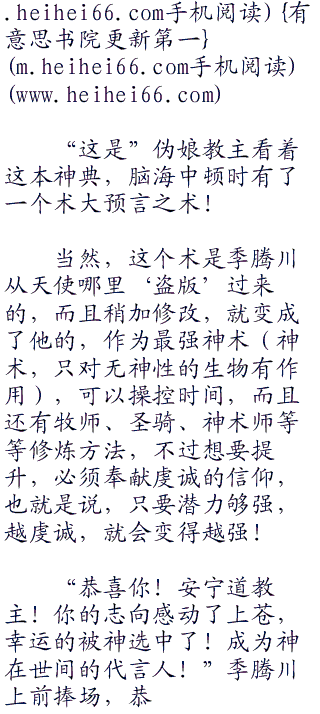 .heihei66.com手机阅读){有
意思书院更新第一}
(m.heihei66.com手机阅读)
(www.heihei66.com)
“这是”伪娘教主看着
这本神典，脑海中顿时有了
一个术大预言之术！
当然，这个术是季腾川
从天使哪里‘盗版’过来
的，而且稍加修改，就变成
了他的，作为最强神术（神
术，只对无神性的生物有作
用），可以操控时间，而且
还有牧师、圣骑、神术师等
等修炼方法，不过想要提
升，必须奉献虔诚的信仰，
也就是说，只要潜力够强，
越虔诚，就会变得越强！
“恭喜你！安宁道教
主！你的志向感动了上苍，
幸运的被神选中了！成为神
在世间的代言人！”季腾川
上前捧场，恭